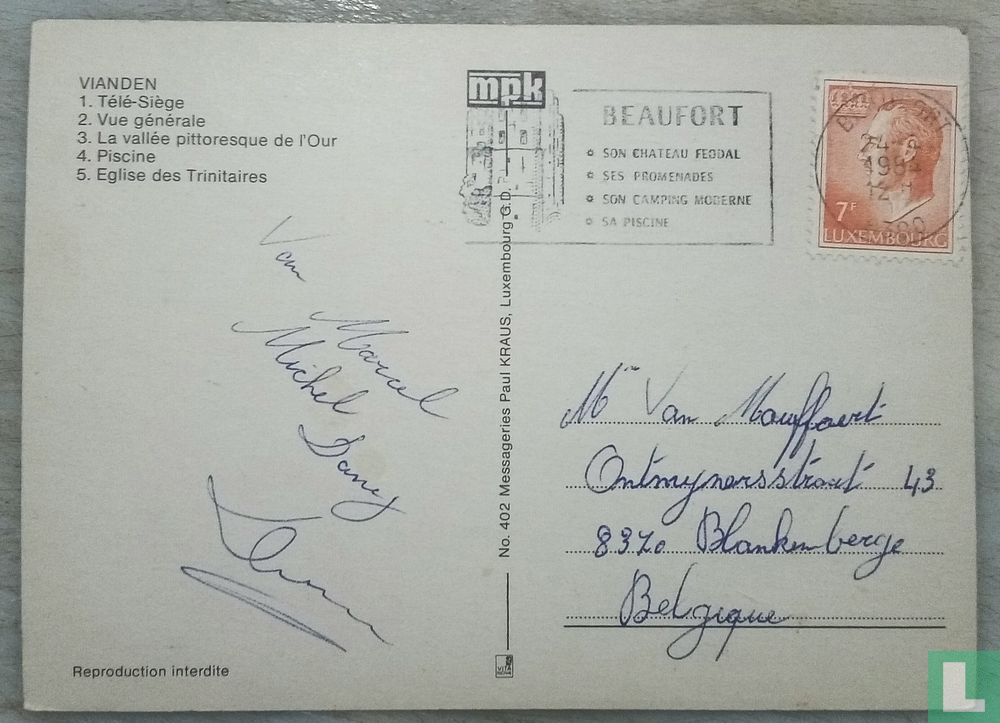 VIANDEN
1. Télé-Siège
2. Vue générale
3. La vallée pittoresque de l'Our
4. Piscine
5. Eglise des Trinitaires
mpk
BEAUFORT
SON CHATEAU FEODAL
SES PROMENADES
SON CAMPING MODERNE
SA PISCINE
24-
1984
12-
7F
LUXEMBOURG
Van
Marcel
Michel
Dany
No. 402 Messageries Paul KRAUS, Luxembourg G.D.
Mr Van Mouffaert
Ontmijnersstraat 43
8370 Blankenberge
Belgique
Reproduction interdite
L